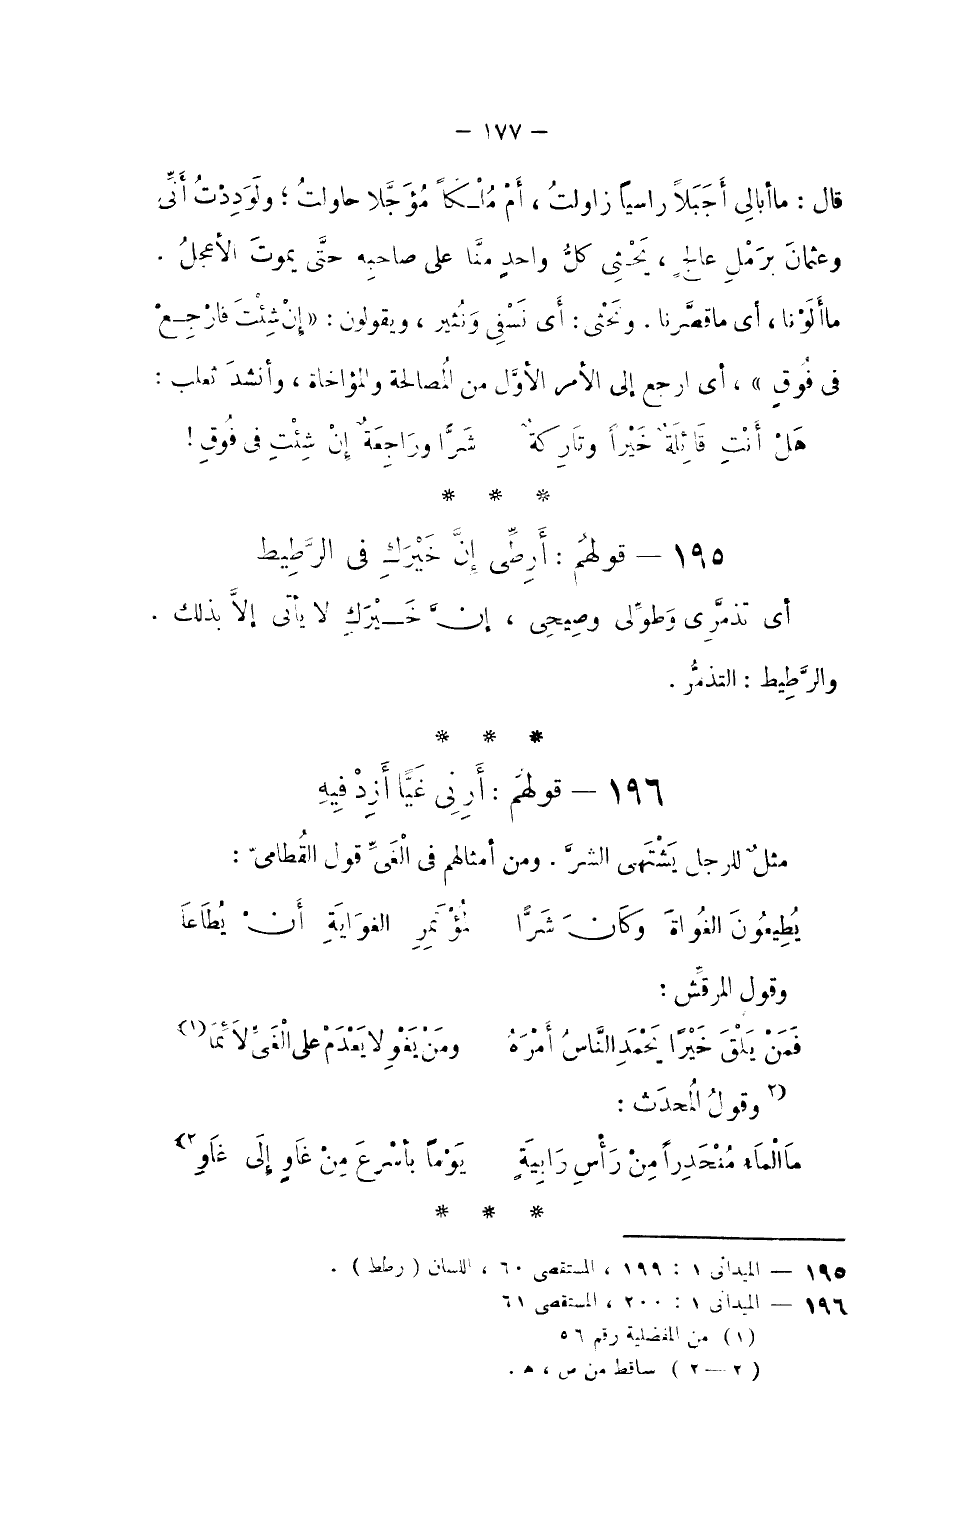 — ١٧٧ —
قال : ماأبالِي أَجَبَلاً راسياً زاولتُ ، أَمْ مُلْكاً مُؤَجَّلا حاولتُ ؛ ولَوَدِدْتُ أَنِّى
وعثمانَ برَمْلِ عالجٍ ، يَحْثِى كلُّ واحدٍ منَّا على صاحبِه حتَّى يموتَ الأعجلُ .
ماأَلَوْنا ، أى ماقصَّرنا . ونَحْثى : أى نَسْفِى وَنُثير ، ويقولون : «إنْ شِئْتَ فارْجِعْ
فى فُوقٍ » ، أى ارجع إلى الأمر الأوَّل من المُصالحة والمؤاخاة ، وأنشدَ ثعلب :
هَلْ أَنْتِ قَائِلَةٌ خَيْراً وتَارِكَةٌ شَرًّا ورَاجِعَةٌ إنْ شِئْتِ فى فُوقِ !
* * *
١٩٥ — قولهُم : أَرِطِّى إنَّ خَيْرَكِ فى الرَّطِيط
أى تذمَّرِى وَطوِّلى وصِيحِى ، إنَّ خَيْرَكِ لا يأتى إلاَّ بذلك .
والرَّطِيط : التذمُّر .
* * *
١٩٦ — قولهُم : أَرِنِى غَيًّا أَزِدْ فِيهِ
مثلٌ للرجل يَشْتَهِى الشرَّ . ومن أمثالهم فى الْغَىِّ قول القُطامىّ :
يُطِيعُونَ الغُواةَ وَكَانَ شَرًّا لمُؤْتَمِرِ الغوَايَةِ أَنْ يُطَاعَا
وقول المرقِّش :
فَمَنْ يَلْقَ خَيْرًا يَحْمَدِ النَّاسُ أَمْرَهُ ومَنْ يَغْوِ لا يَعْدَمْ على الْغَىِّ لاَئمَا(١)
(٢ وقولُ المُحدَث :
مَاالْمَاءِ مُنْحَدِراً مِنْ رَأْسِ رَابِيَةٍ يَوْماً بأسْرعَ مِنْ غَاوٍ إلَى غَاوِ ٢)
* * *
١٩٥ — الميدانى ١ : ١٩٩ ، المستقصى ٦٠ ، اللسان ( رطط ) .
١٩٦ — الميدانى ١ : ٢٠٠ ، المستقصى ٦١
(١) من المفضلية رقم ٥٦
(٢ — ٢) ساقط من ص ، ه .